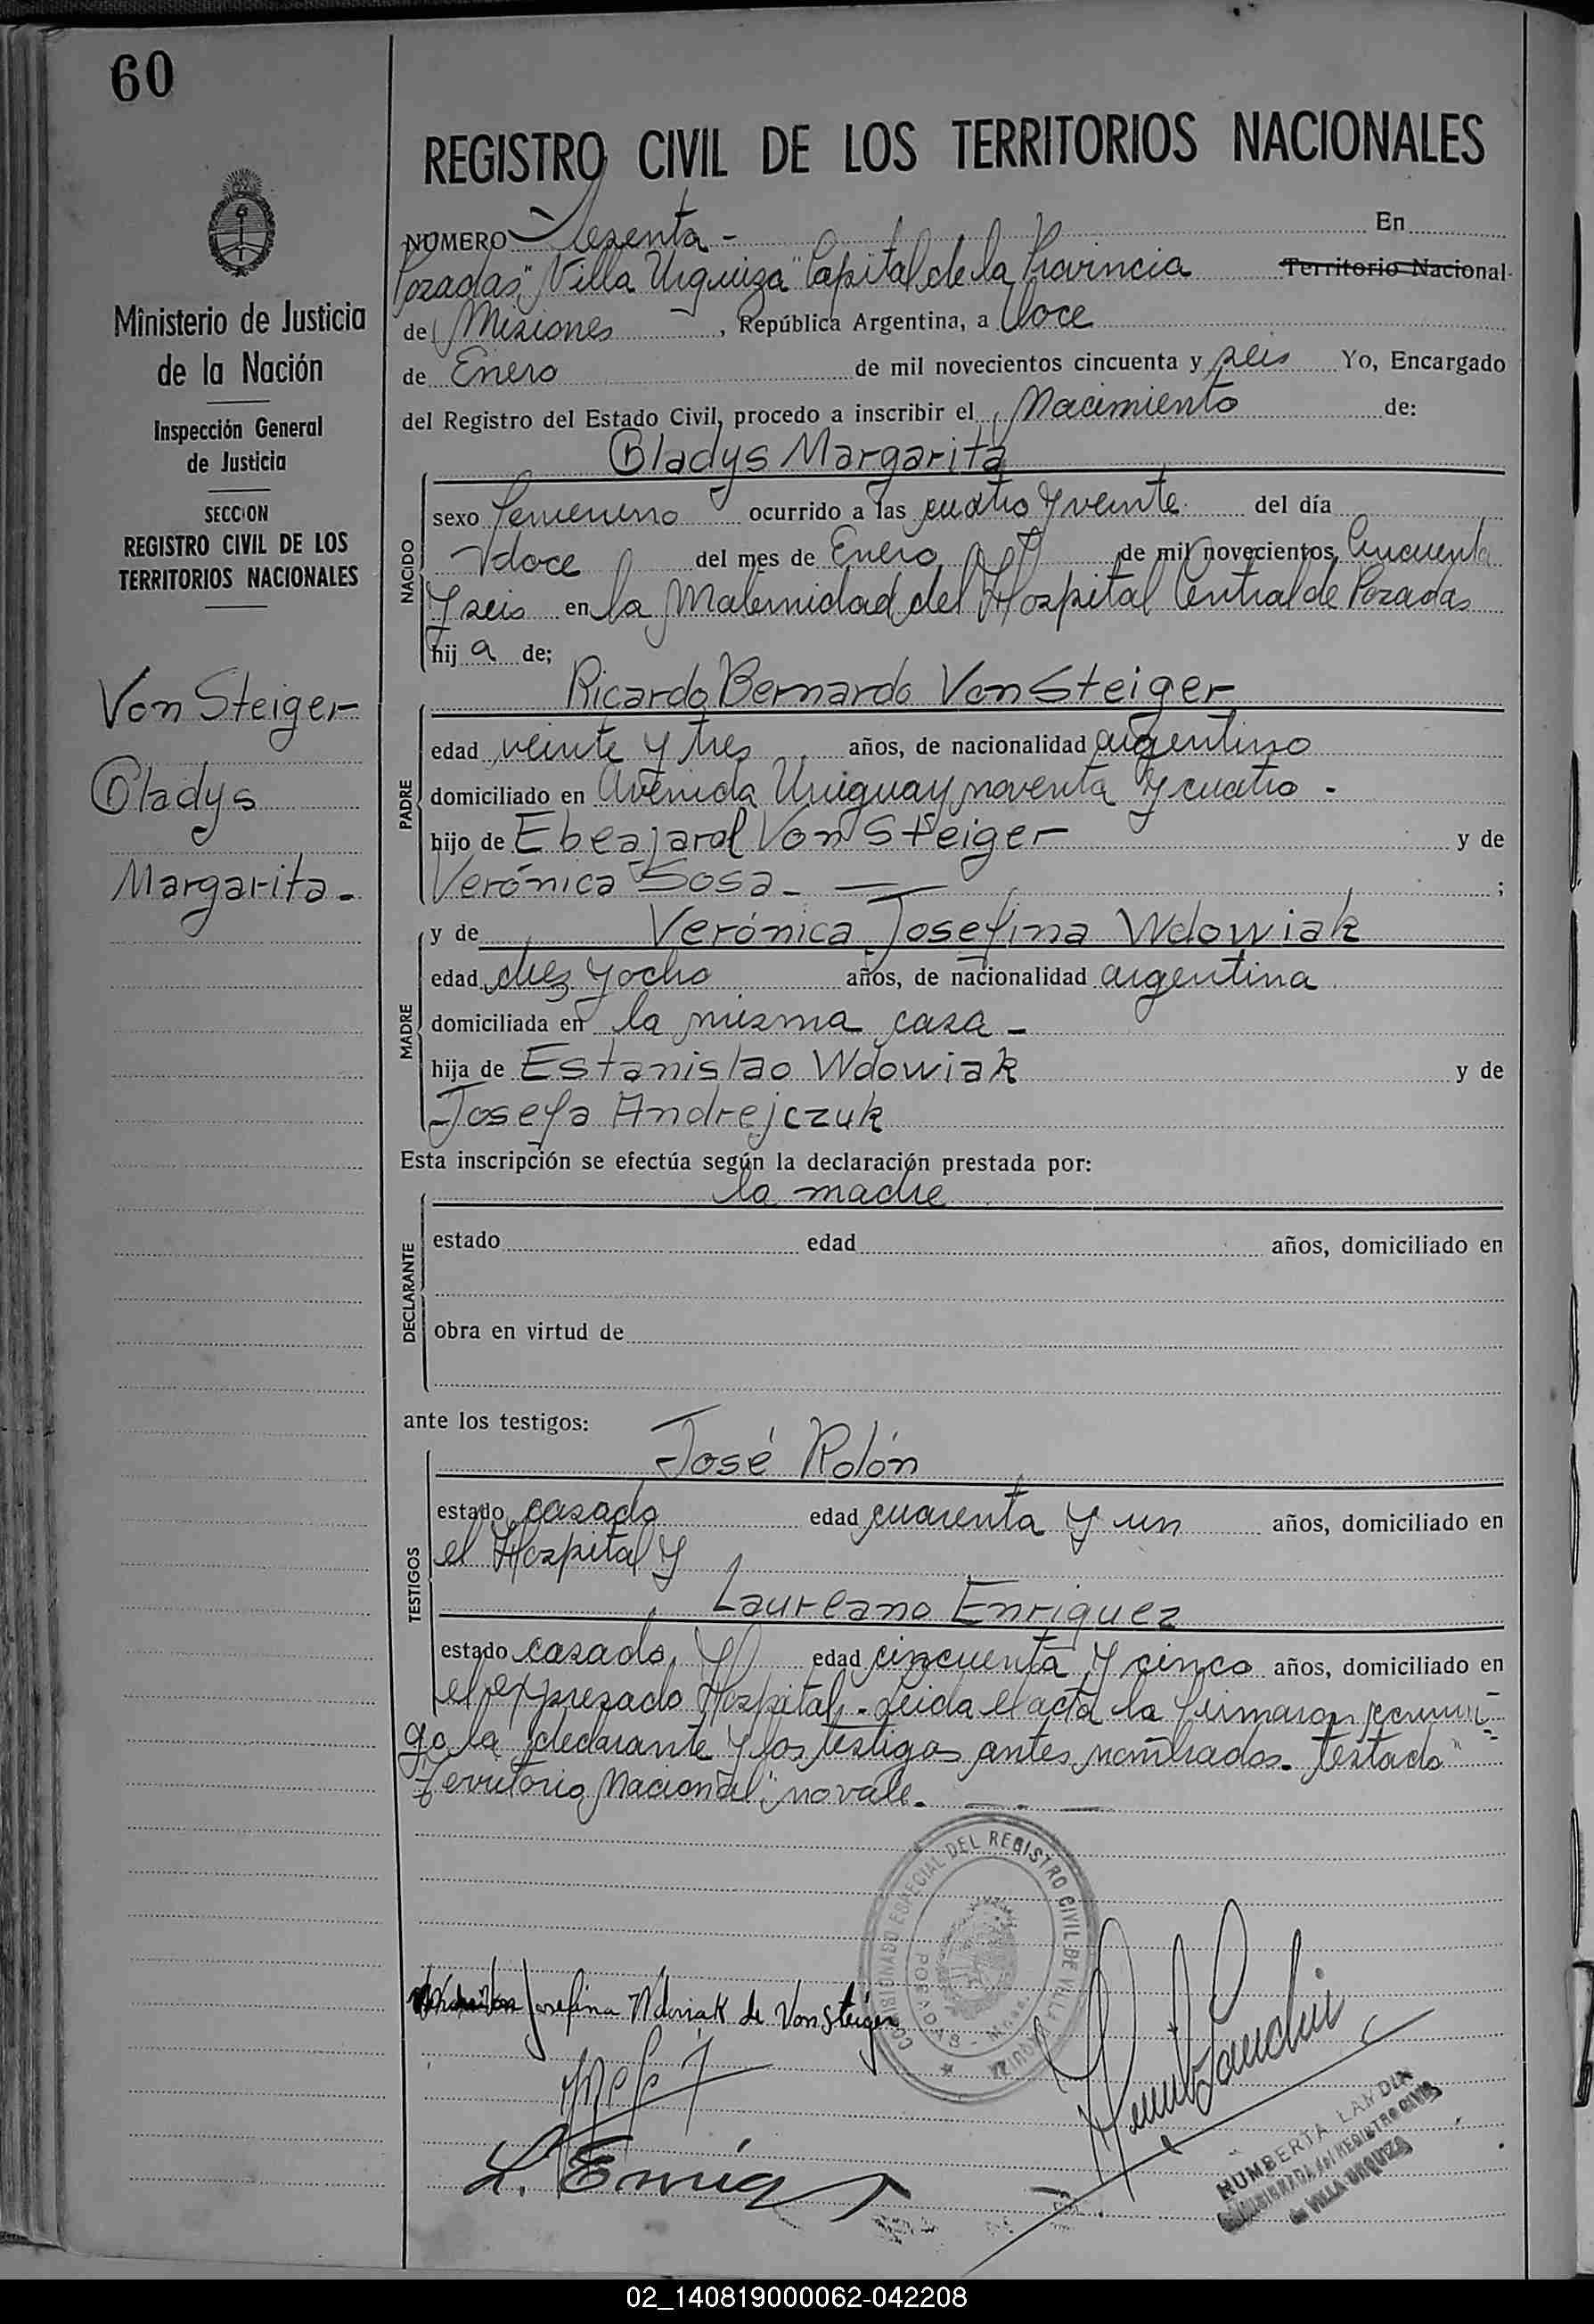 60
REGISTRO CIVIL DE LOS TERRITORIOS NACIONALES
NÚMERO Sesenta - En
Posadas "Villa Urquiza" Capital de la Provincia Territorio Nacional
de Misiones, República Argentina, a doce
de Enero de mil novecientos cincuenta y seis Yo, Encargado
del Registro del Estado Civil, procedo a inscribir el Nacimiento de:
Gladys Margarita
NACIDO
sexo femenino ocurrido a las cuatro y veinte del día
doce del mes de Enero de mil novecientos cincuenta
y seis en la Maternidad del Hospital Central de Posadas
hij a de;
Ricardo Bernardo Von Steiger
PADRE
edad veinte y tres años, de nacionalidad argentino
domiciliado en Avenida Uruguay noventa y cuatro -
hijo de Ebeajard Von Steiger y de
Verónica Sosa - ;
y de Verónica Josefina Wdowiak
MADRE
edad diez y ocho años, de nacionalidad argentina
domiciliada en la misma casa -
hija de Estanislao Wdowiak y de
Josefa Andrejczuk
Esta inscripción se efectúa según la declaración prestada por:
la madre
DECLARANTE
estado edad años, domiciliado en
obra en virtud de
ante los testigos:
José Rolón
TESTIGOS
estado casado edad cuarenta y un años, domiciliado en
el Hospital y
Laureano Enriquez
estado casado, y edad cincuenta y cinco años, domiciliado en
el expresado Hospital - Leida el acta la firmaron conmi-
go la declarante y los testigos antes nombrados. Testado "
Territorio Nacional": no vale.
Ministerio de Justicia
de la Nación
Inspección General
de Justicia
SECCION
REGISTRO CIVIL DE LOS
TERRITORIOS NACIONALES
Von Steiger
Gladys
Margarita -
COMISIONADO ESPECIAL DEL REGISTRO CIVIL DE VILLA URQUIZA
POSADAS - Mnes.
Josefina Wdowiak de Von Steiger
L. Enriq
HUMBERTA LANDIN
COMISIONADA del REGISTRO CIVIL
de VILLA URQUIZA
02_140819000062-042208